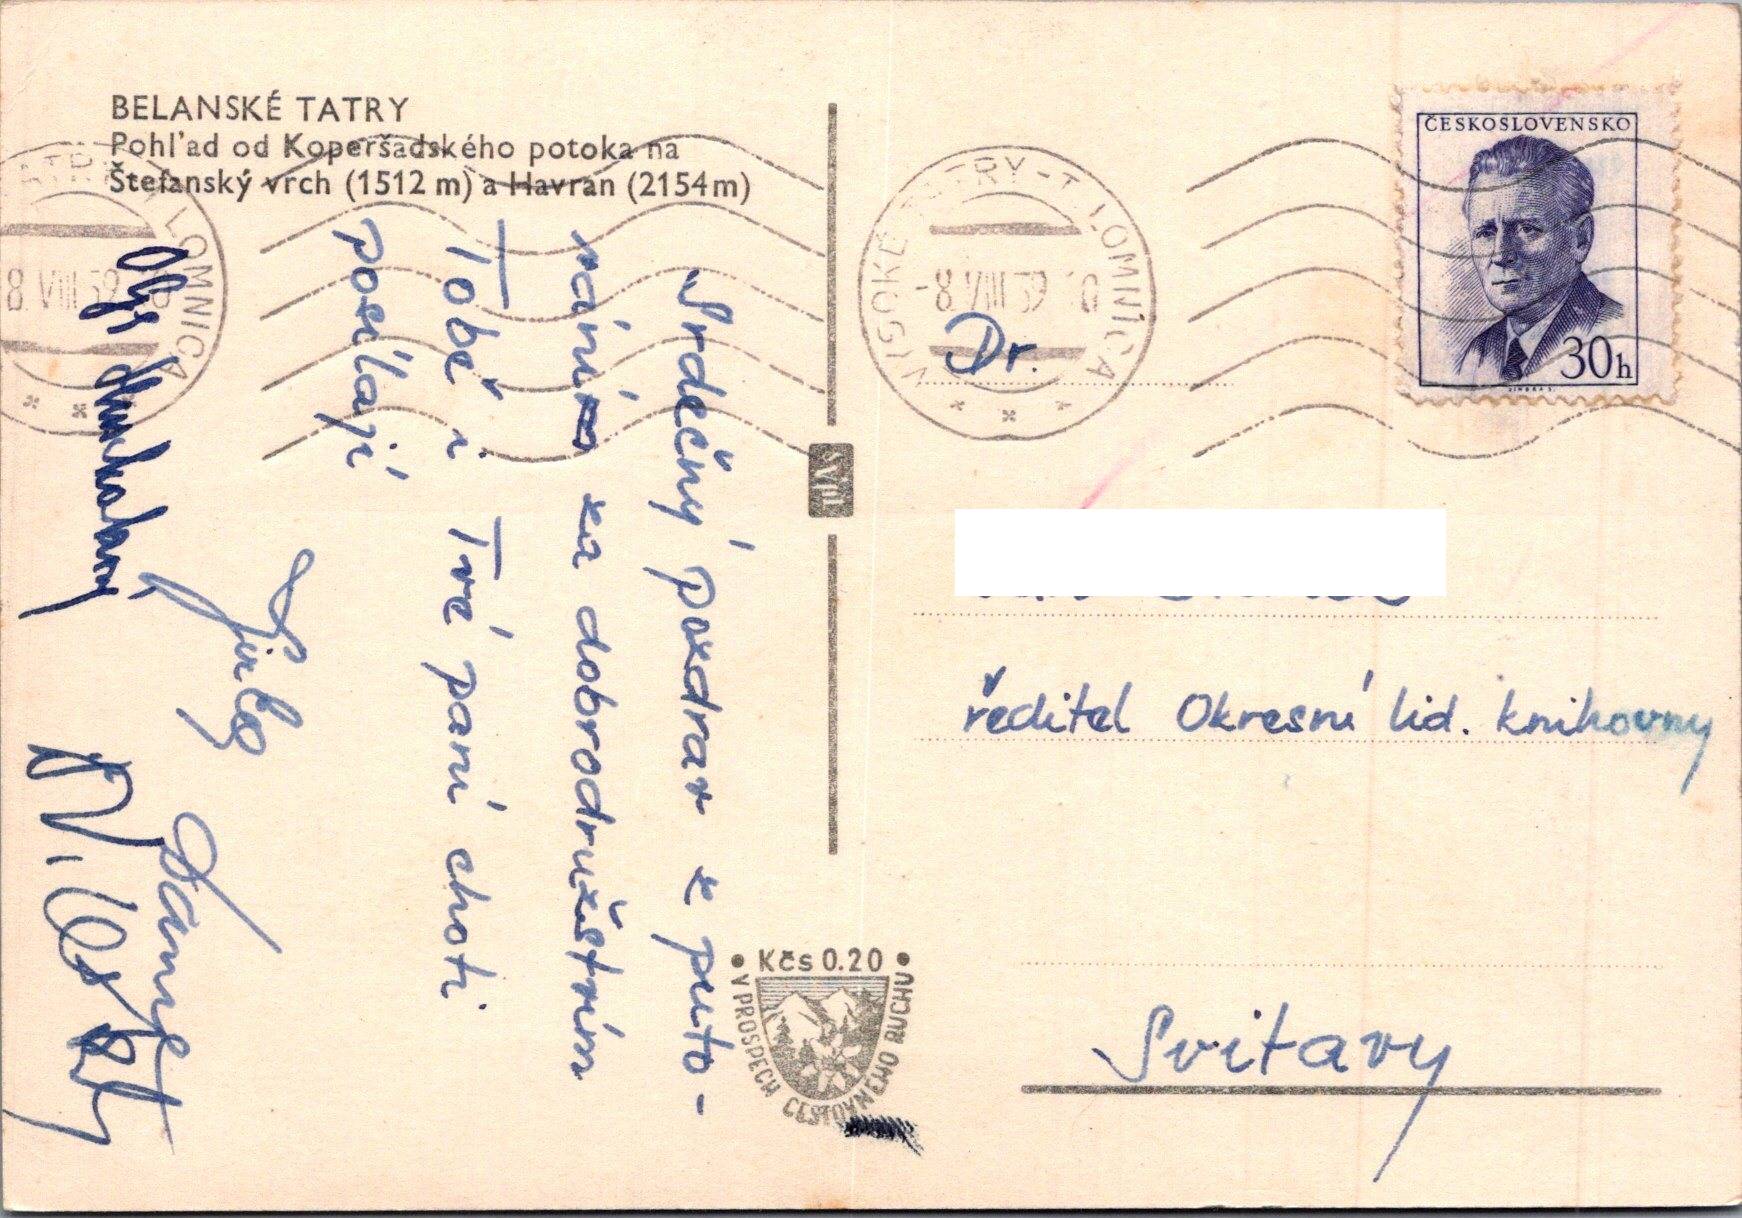 BELANSKÉ TATRY
Pohľad od Koperšadského potoka na
Štefanský vrch (1512 m) a Havran (2154 m)
Srdečný pozdrav z puto-
vání za dobrodružstvím
Tobě i Tvé paní choti
posílají
VYSOKÉ TATRY - T. LOMNICA
-8. VIII 59
TATRY T. LOMNICA
8. VIII 59
ČESKOSLOVENSKO
30h
Dr.
ředitel Okresní lid. knihovny
Svitavy
• Kčs 0.20 •
V PROSPECH CESTOVNÉHO RUCHU